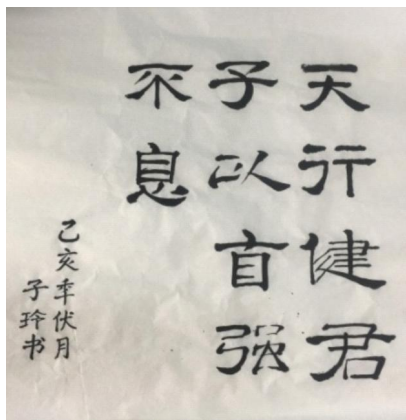 天行健君
子以自强
不息
乙亥年伏月
子玲书